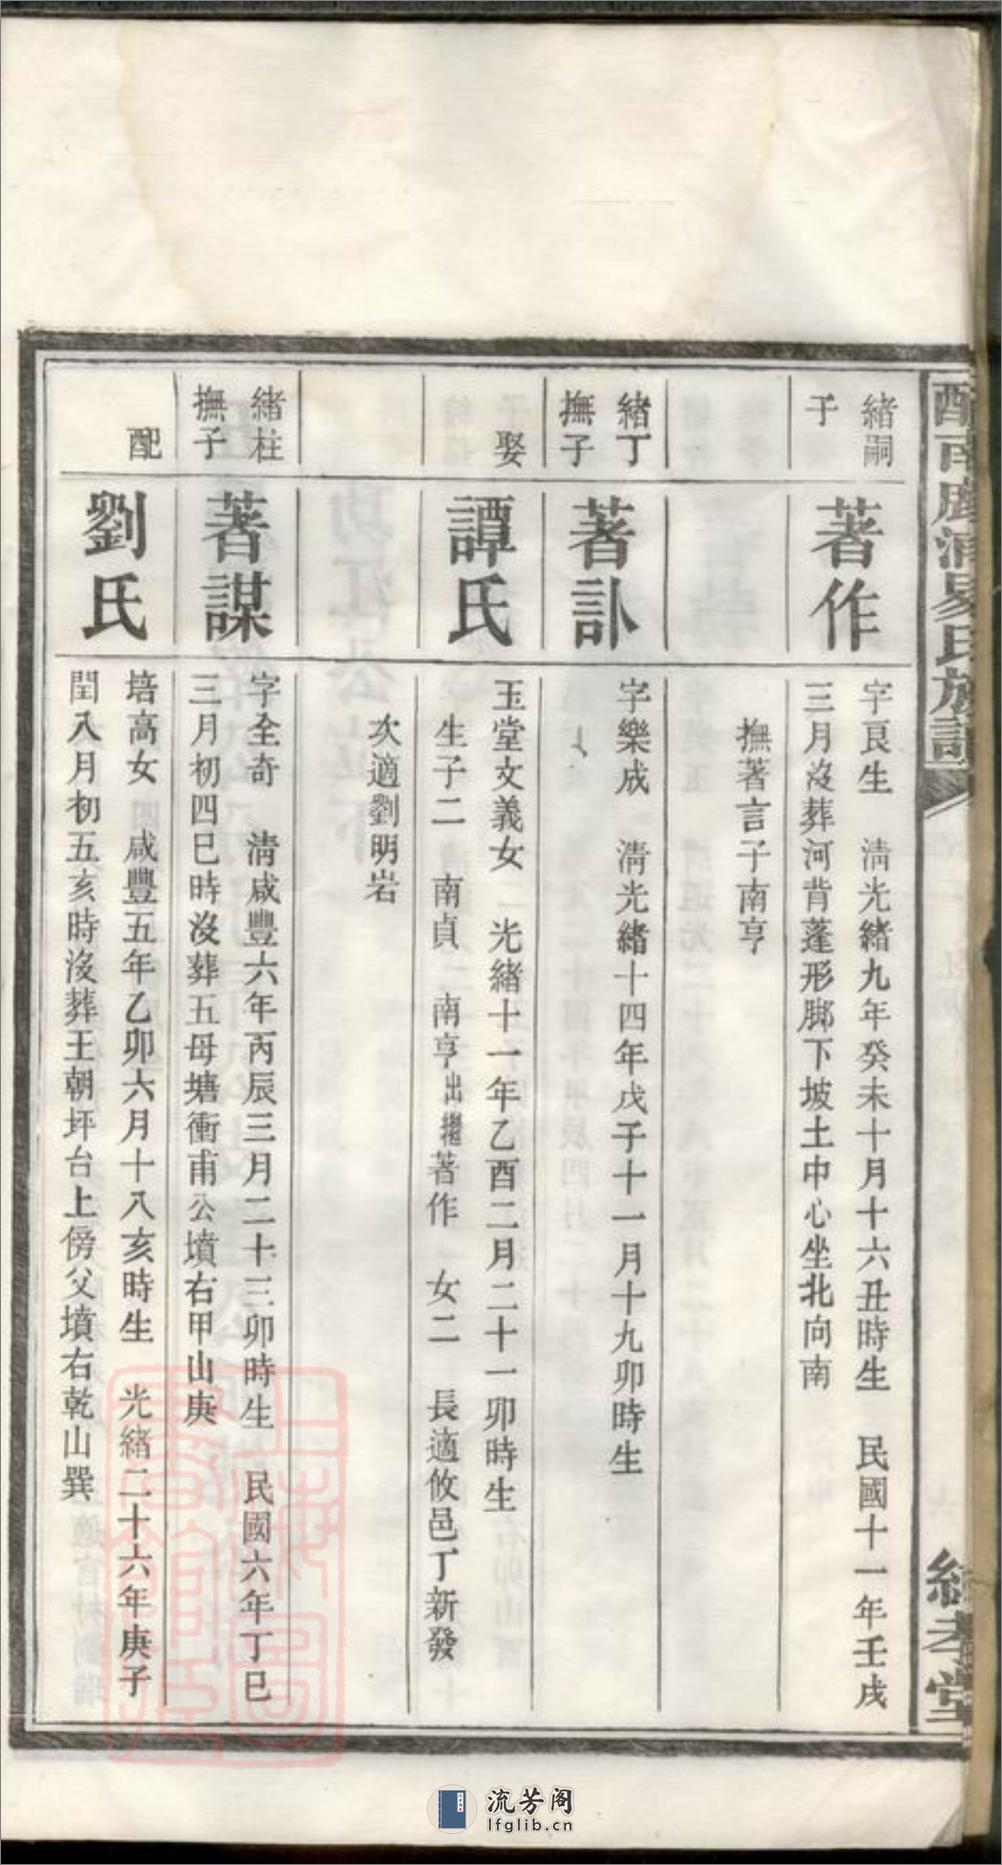 醴南鹿清易氏族譜
緒嗣
子
著作
字良生　清光緒九年癸未十月十六丑時生　民國十一年壬戌
三月沒葬河背蓬形腳下坡土中心坐北向南
撫著言子南亨
緒丁
撫子
著訃
字樂成　清光緒十四年戊子十一月十九卯時生
娶
譚氏
玉堂文義女　光緒十一年乙酉二月二十一卯時生
生子二　南貞　南亨出繼著作　女二　長適攸邑丁新發
次適劉明岩
緒柱
撫子
著謀
字全奇　清咸豐六年丙辰三月二十三卯時生　民國六年丁巳
三月初四巳時沒葬五母塘衝甫公墳右甲山庚
配
劉氏
培高女　咸豐五年乙卯六月十八亥時生　光緒二十六年庚子
閏八月初五亥時沒葬王朝坪台上傍父墳右乾山巽
孝堂
流芳阁
lfglib.cn